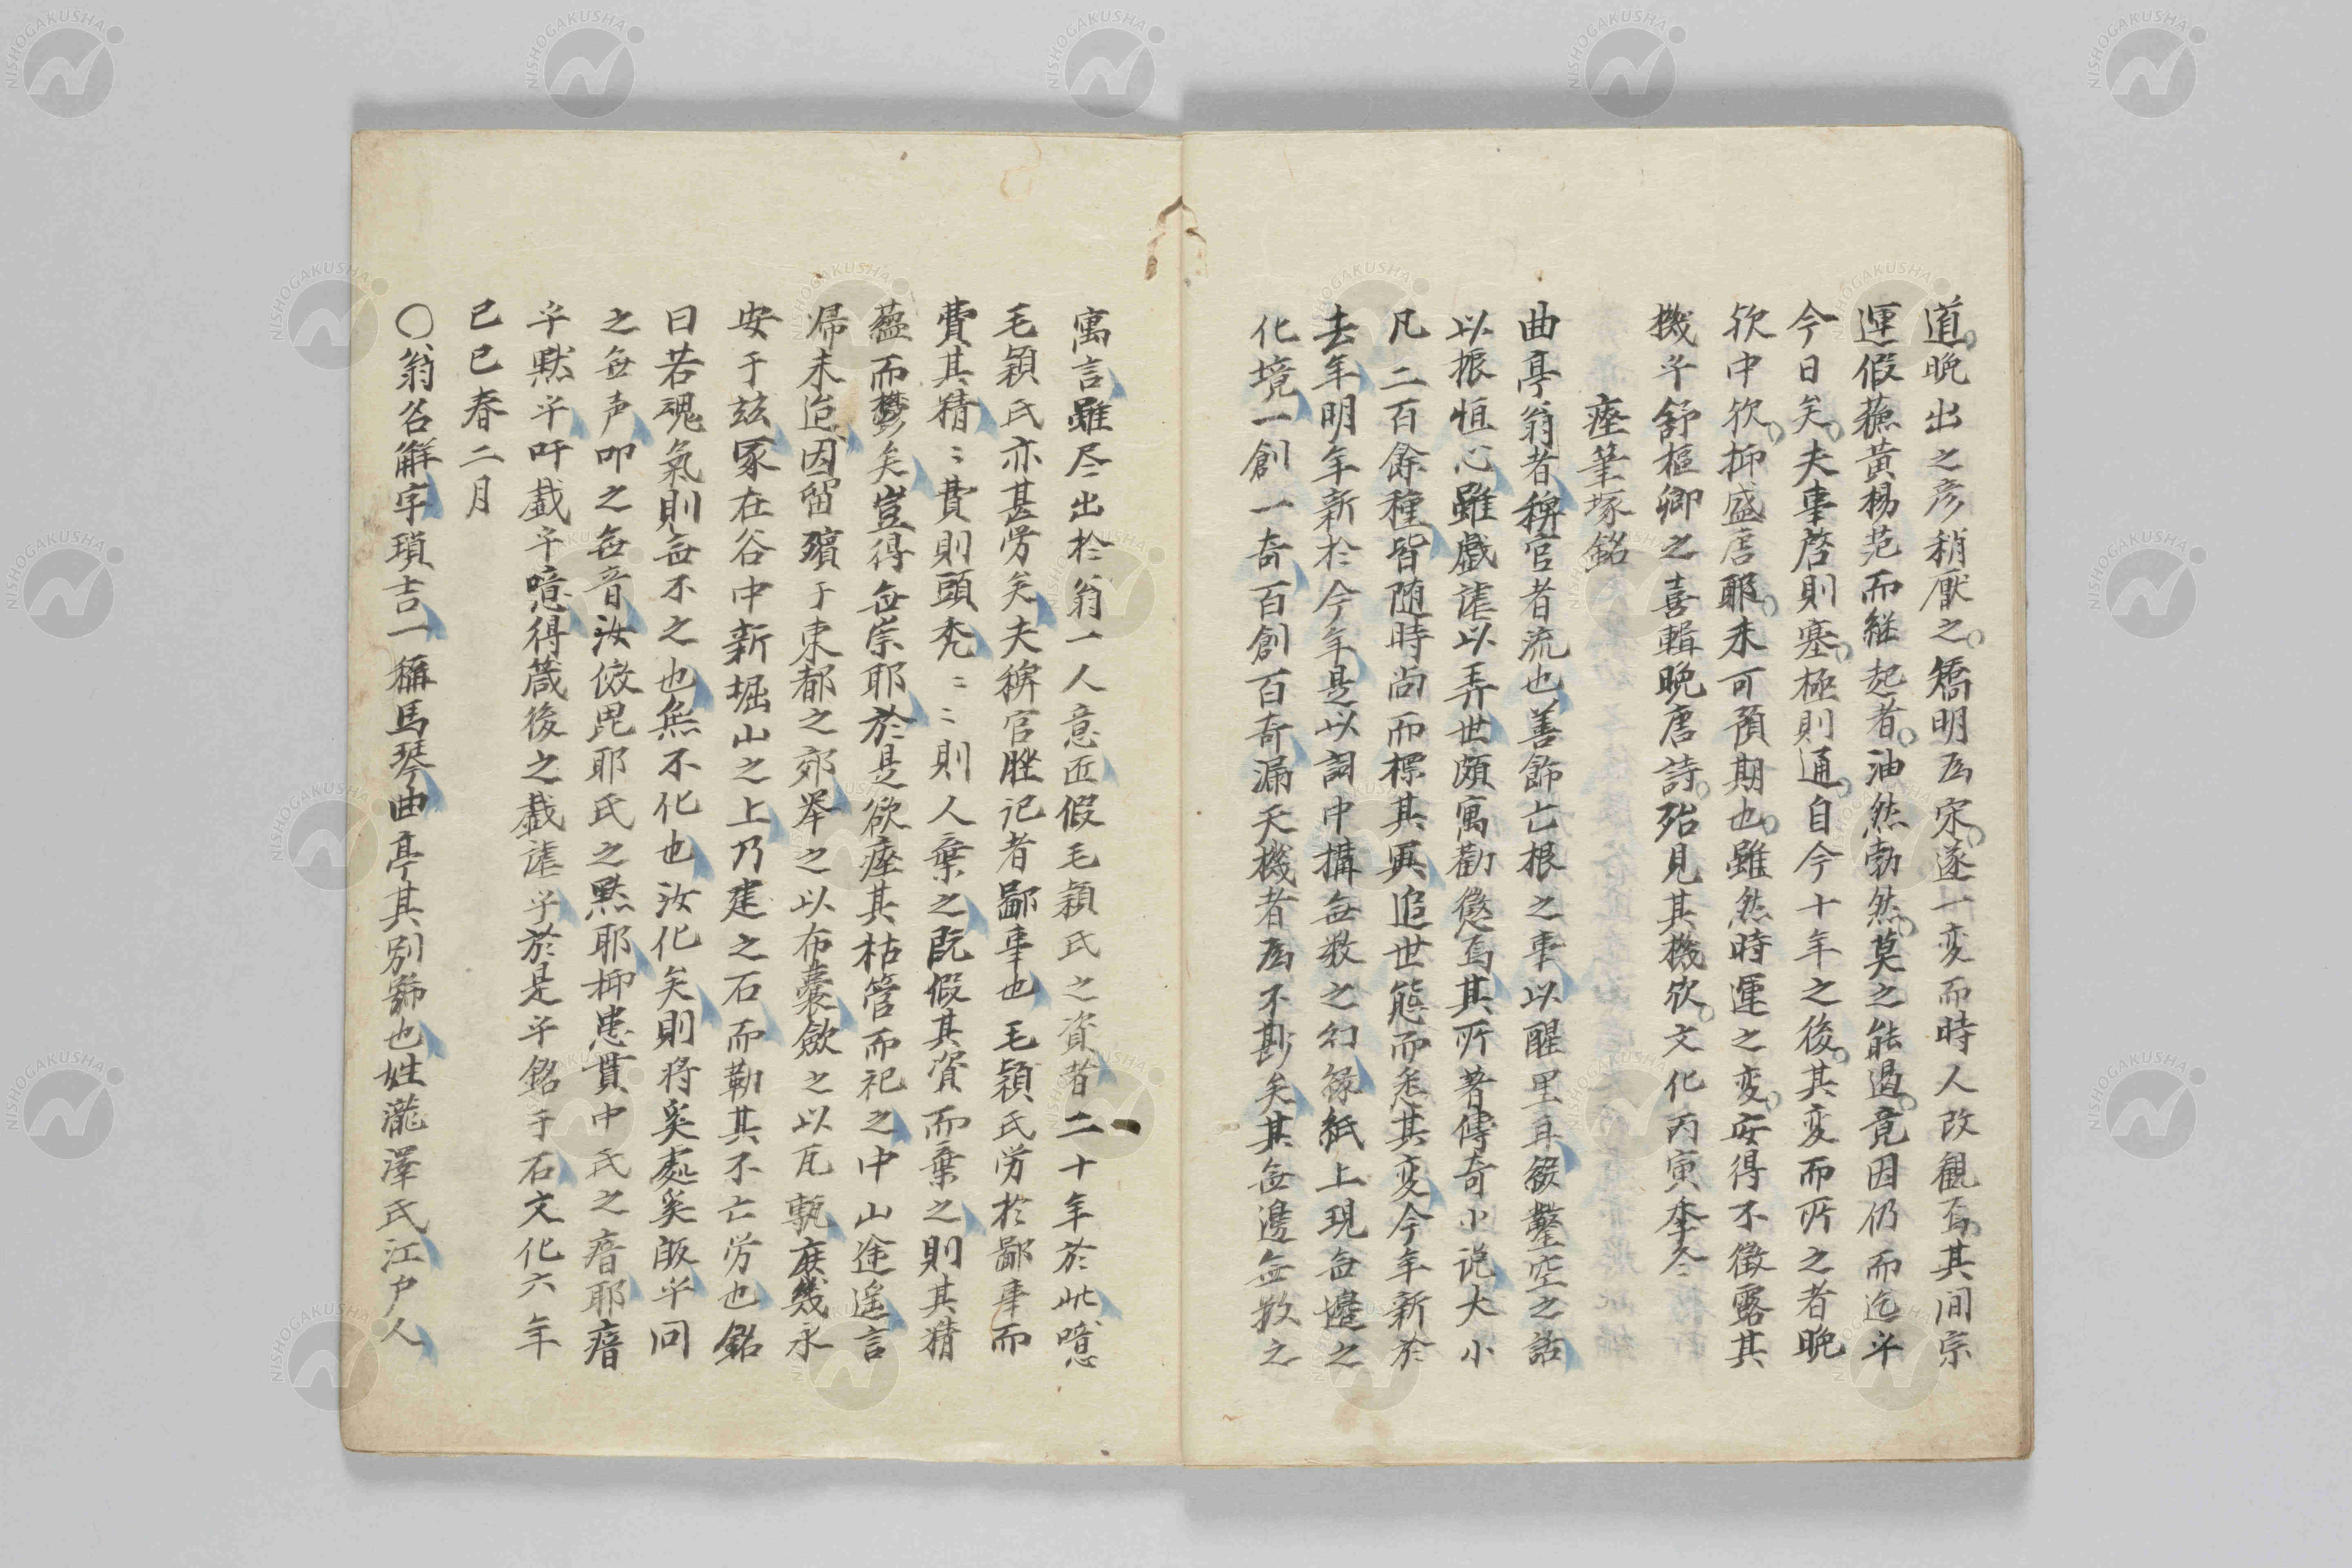 道。晩出之彦稍厭之。矯明為宋。遂一変而時人改観焉。其间宗
運假蘓黄楊范而継起者。油然勃然。莫之能遏。竟因仍而迄乎
今日矣。夫事啓則塞。極則通。自今十年之後。其変而所之者晩
欤中欤。抑盛唐耶。未可預期也。雖然時運之変。安得不徴露其
機乎舒樞卿之喜輯晩唐詩。殆見其機欤。文化丙寅季冬
瘞筆塚銘
曲亭翁者稗官者流也善飾亡根之事以醒里耳欲鑿空之話
以振恒心雖戯謔以弄世頗寓勸懲焉其所著傳奇小说大小
凡二百餘種皆随時尚而標其異追世態而悉其変今年新於
去年明年新於今年是以詞中搆無数之幻縁紙上現無邊之
化境一創一奇百創百奇漏天機者為不尠矣其無邊無数之
寓言雖尽出於翁一人意匠假毛穎氏之資者二十年於此噫
毛穎氏亦甚労矣夫稗官脞记者鄙事也毛穎氏労於鄙事而
費其精〻費則頭禿〻〻則人棄之既假其資而棄之則其精
蘊而欝矣豈得無祟耶於是欲瘞其枯管而祀之中山途遥言
帰未迨因留殯于東都之郊挙之以布嚢斂之以瓦甎庶幾永
安于玆冢在谷中新堀山之上乃建之石而勒其不亡労也銘
曰若魂氣則無不之也無不化也汝化矣則将奚處奚皈乎问
之無声叩之無音汝倣毘耶氏之黙耶抑患貫中氏之瘖耶瘖
乎黙乎吁戯乎噫得箴後之戯謔乎於是乎銘于石文化六年
己巳春二月
〇翁名觧字瑣吉一稱馬琴曲亭其别號也姓瀧澤氏江户人
NISHOGAKUSHA